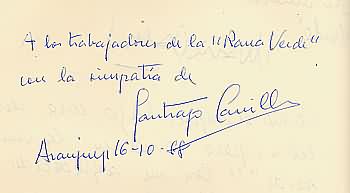 A los trabajadores de la "Rana Verde"
con la simpatía de
Santiago Carrillo
Aranjuez 16-10-88